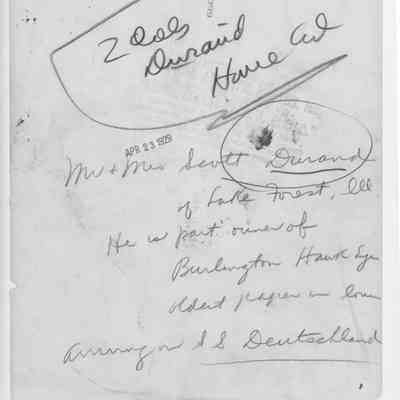 2 cols
Durand
Have Cut
APR 23 1929
Mr + Mrs Scott Durand
of Lake Forest, Ill
He is part owner of
Burlington Hawk Eye
oldest paper in Iowa
arriving on S S Deutschland